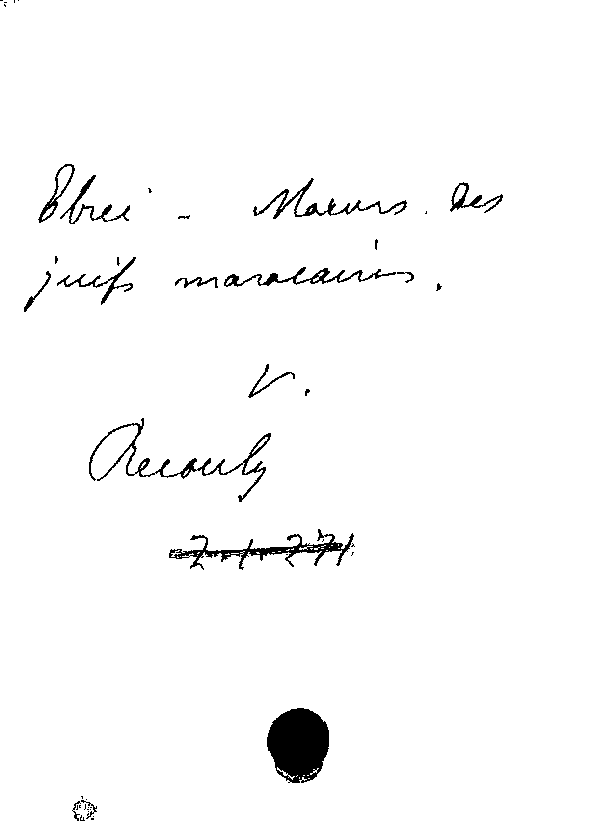 Ebrei - Moeurs des
juifs marocains.
V.
Recouly
7.1.271